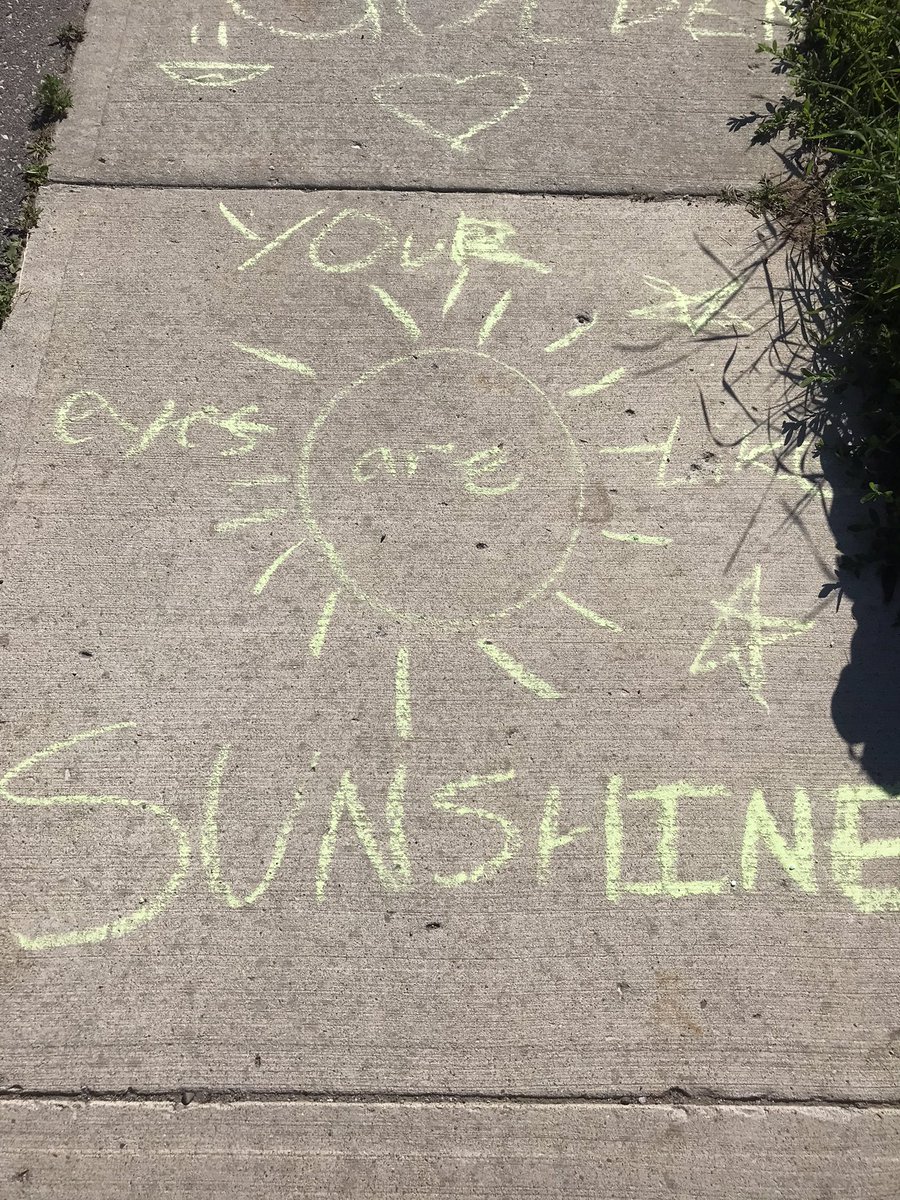 YOUR
eyes are Like
SUNSHINE